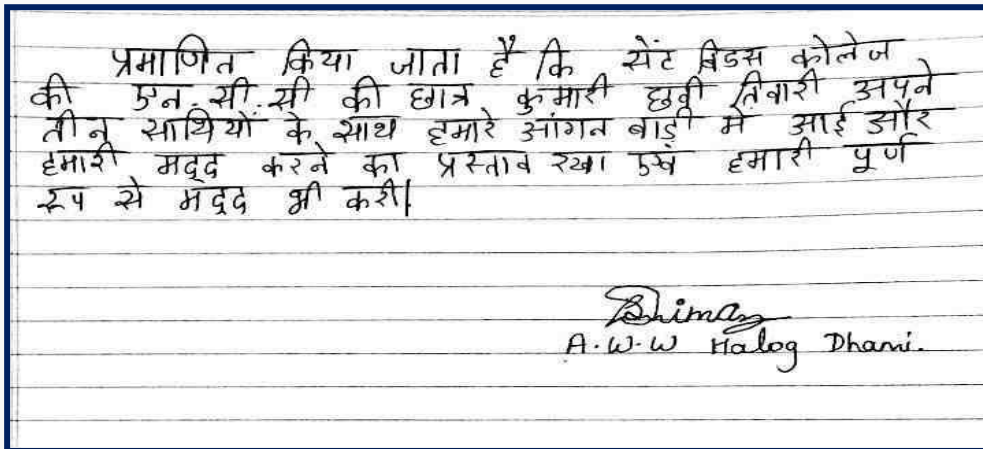 प्रमाणित किया जाता है कि सेंट बिडस कोलेज
की एन.सी.सी की छात्र कुमारी छवी तिवारी अपने
तीन साथियों के साथ हमारे आंगन बाड़ी मे आई और
हमारी मद्द करने का प्रस्ताव रखा एवं हमारी पूर्ण
रूप से मद्द भी करी|
A.W.W Halog Dhami.